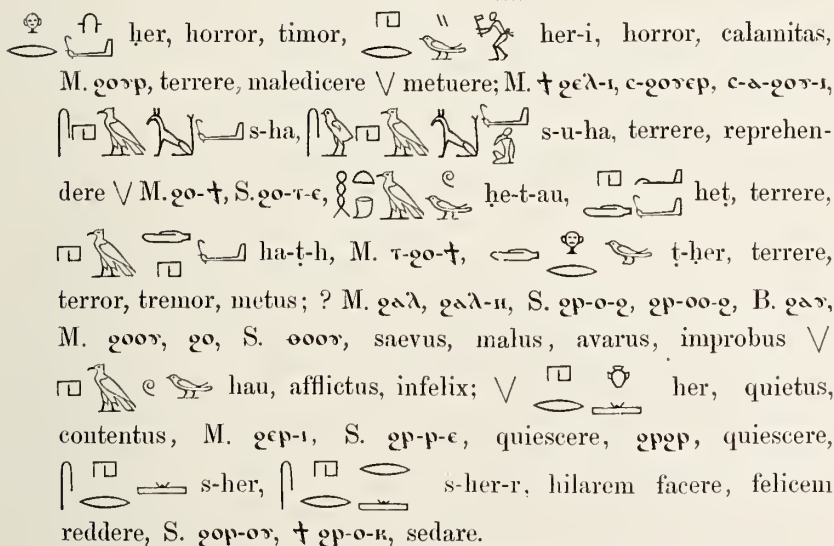 ḥer, horror, timor, her-i, horror, calamitas,
M. ϩⲟⲩⲣ, terrere, maledicere \/ metuere; M. ϯ ϩⲉⲗ-ⲓ, ⲥ-ϩⲟⲩⲉⲣ, ⲥ-ⲁ-ϩⲟⲩ-ⲓ,
s-ha, s-u-ha, terrere, reprehen-
dere \/ M. ϩⲟ-ϯ, S. ϩⲟ-ⲧ-ⲉ, ḥe-t-au, heṭ, terrere,
ha-ṭ-h, M. ⲧ-ϩⲟ-ϯ, ṭ-ḥer, terrere,
terror, tremor, metus; ? M. ϩⲁⲗ, ϩⲁⲗ-ⲏ, S. ϩⲣ-ⲟ-ϩ, ϩⲣ-ⲟⲟ-ϩ, B. ϩⲁⲩ,
M. ϩⲟⲟⲩ, ϩⲟ, S. ⲑⲟⲟⲩ, saevus, malus, avarus, improbus \/
hau, afflictus, infelix; \/ her, quietus,
contentus, M. ϩⲉⲣ-ⲓ, S. ϩⲣ-ⲣ-ⲉ, quiescere, ϩⲣϩⲣ, quiescere,
s-her, s-her-r, hilarem facere, felicem
reddere, S. ϩⲟⲣ-ⲟⲩ, ϯ ϩⲣ-ⲟ-ⲕ, sedare.